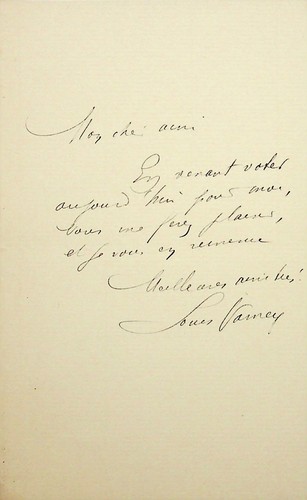 Mon cher ami
En venant voter
aujourd'hui pour moi,
vous me ferez plaisir,
et je vous en remercie
Meilleures amitiés
Louis Varney